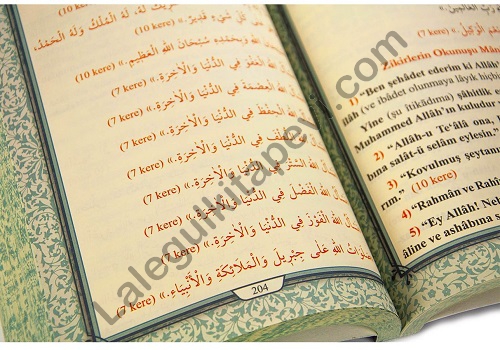 شَرِيكَ لَهُ، لَهُ الْمُلْكُ وَلَهُ الْحَمْدُ،
كُلِّ شَيْءٍ قَدِيرٌ.» (10 kere)
وَبِحَمْدِهِ سُبْحَانَ اللهِ الْعَظِيمِ.» (10 kere)
اللهَ الْعَفْوَ فِي الدُّنْيَا وَالْآخِرَةِ.» (7 kere)
اللهَ الْعِصْمَةَ فِي الدُّنْيَا وَالْآخِرَةِ.» (7 kere)
اللهَ الْحِفْظَ فِي الدُّنْيَا وَالْآخِرَةِ.» (7 kere)
فِي الدُّنْيَا وَالْآخِرَةِ.» (7 kere)
اللهَ السَّتْرَ فِي الدُّنْيَا وَالْآخِرَةِ.» (7 kere)
اللهَ الْفَضْلَ فِي الدُّنْيَا وَالْآخِرَةِ.» (7 kere)
اللهَ الْفَوْزَ فِي الدُّنْيَا وَالْآخِرَةِ.» (7 kere)
اللهِ عَلَى جِبْرِيلَ وَالْمَلَائِكَةِ وَالْأَنْبِيَاءِ.» (7 kere)
204
Zikirlerin Okunuşu
1) "Ben şehâdet ederim ki Allâh
lâh (ve ibâdet olunmaya lâyık hiçb
Yine (şu îtikâdıma) şâhitlik
Muhammed Allâh'ın kuludur
2) "Allâh-u Te'âlâ ona,
bına salât-ü selâm eylesin."
3) "Kovulmuş şeytan
rım." (10 kere)
4) "Rahmân ve Rahî
5) "Ey Allâh! Ne
âline ve ashâbına
Lalegulkitapevi.com